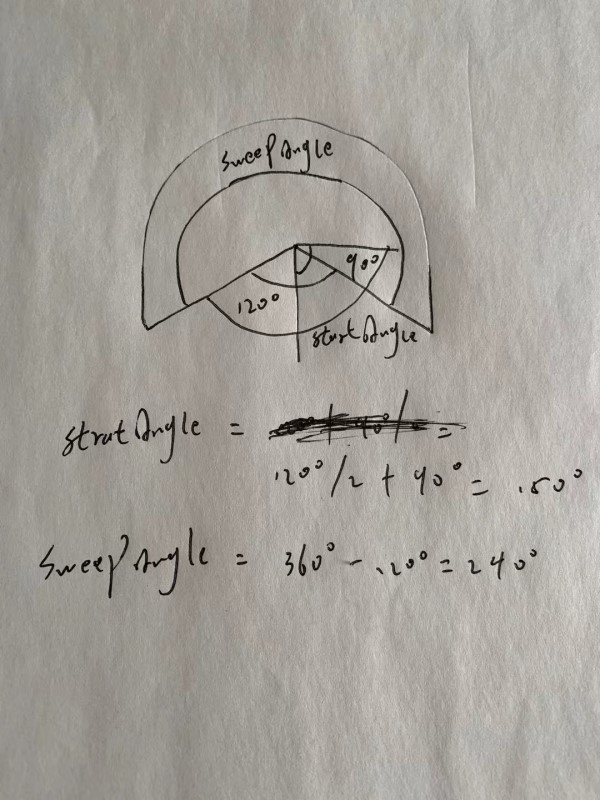 sweepAngle
90°
120°
startAngle
stratAngle =
120°/2 + 90° = 150°
SweepAngle = 360° - 120° = 240°